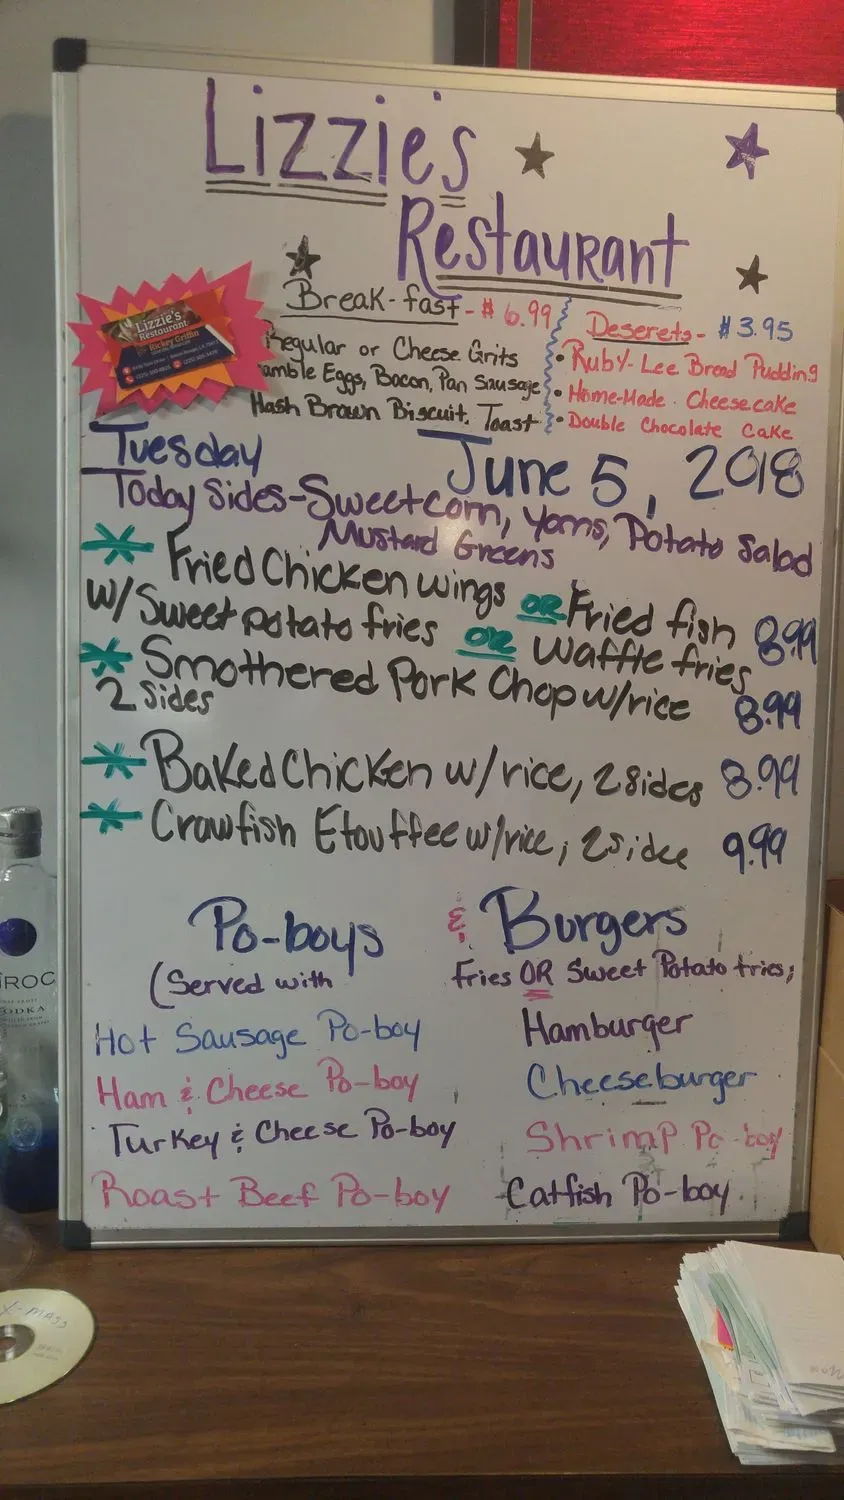 Lizzie's
Restaurant
Break-fast - $6.99
Regular or Cheese Grits
amble Eggs, Bacon, Pan Sausage
Hash Brown Biscuit, Toast
Deserets - $3.95
• Ruby-Lee Bread Pudding
• Home-Made Cheesecake
• Double Chocolate Cake
Lizzie's
Restaurant
Rickey Griffin
Tuesday June 5, 2018
Today Sides-Sweetcorn, Yams, Potato Salad
Mustard Greens
* Fried Chicken wings OR Fried fish 8.99
w/Sweet potato fries OR Waffle fries
* Smothered Pork Chop w/rice 8.99
2 Sides
* Baked Chicken w/rice, 2 sides 8.99
* Crawfish Etouffee w/rice, 2 sides 9.99
Po-boys & Burgers
(Served with fries OR Sweet Potato fries;
Hot Sausage Po-boy
Ham & Cheese Po-boy
Turkey & Cheese Po-boy
Roast Beef Po-boy
Hamburger
Cheeseburger
Shrimp Po-boy
Catfish Po-boy
IROC
ODKA
X-mass